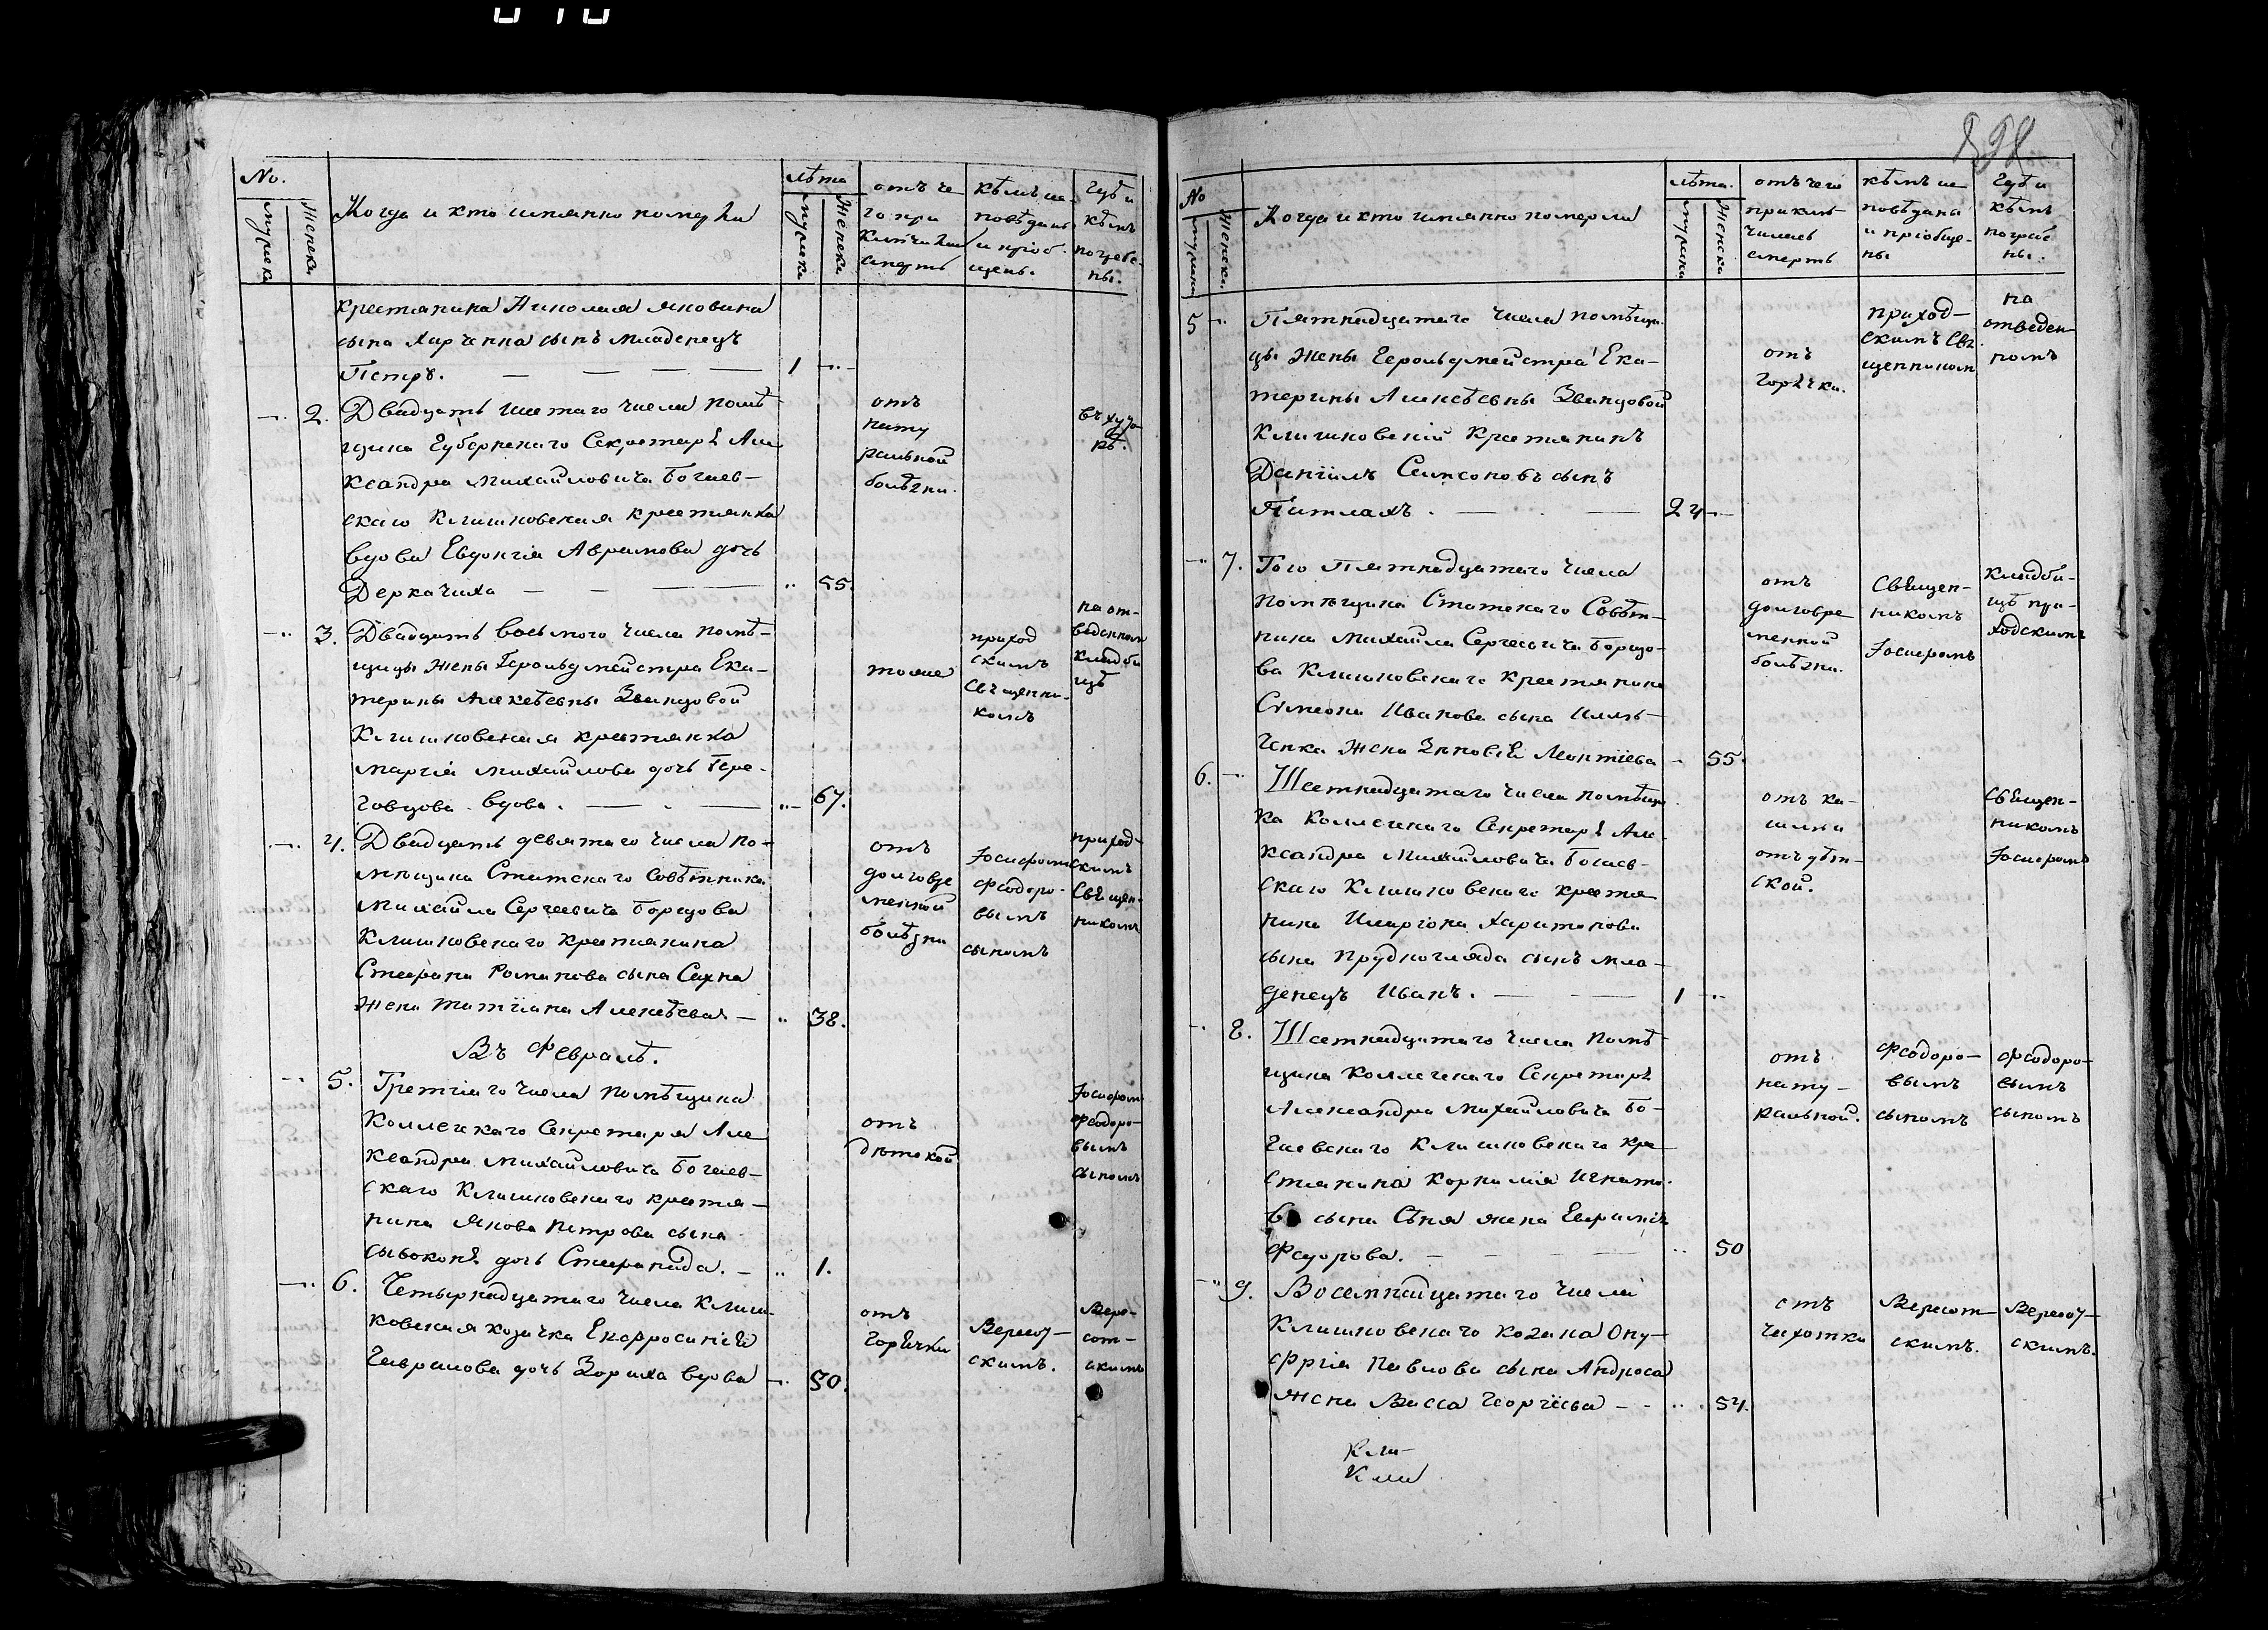 No.
мужеска
Женска
Когда и кто имянно померли
лѣта
мужеска
Женска
отъ че
го при
ключила
смерть
кѣмъ ис
повѣданы
и пріоб
щены.
Гдѣ и
кѣмъ
погребе
ны.
крестянина Николая Яковина
сына Харченка сынъ младенецъ
Петръ. — — — — 1 —..—
—.. 2. Двадцать шестаго числа помѣ-
щика Губернскаго Секретарѣ Але
ксандра Михайловича Богаев-
скаго Клишковская крестянка
вдова Евдокія Аврамова дочь
Деркачиха — — — .. 55.
отъ
нату
ральной
болѣзни.
въ хуто
рѣ.
—.. 3. Двадцать восьмого числа помѣ-
щицы жены Герольдмейстра Ека-
терины Алексѣевны Званцовой
Клишковская крестянка
Марія Михайлова дочь Гере-
говцова вдова. — . — ..— 67.
тояже
приход
скимъ
Священни-
комъ
на от-
веденном
кладби
щѣ
.—.. 4. Двадцать девятаго числа по-
мѣщика Статскаго Совѣтника
Михайла Сергеевича Борщова
Клишковскаго крестянина
Стефана Романова сына Сахна
жена Татіана Алексѣева — .. 38.
отъ
долговре
менной
болѣзни
Іосифомъ
Феодоро-
вымъ
сыномъ
приход-
скимъ
Свѣщен-
никомъ
Въ Февралѣ.
—.. 5. Третіаго числа помѣщика
Коллегскаго Секретаря Але
ксандра Михайловича Богаев-
скаго Клишковскаго крестя-
нина Якова Петрова сына
Сивоконѣ дочь Стефанида. — .. 1.
отъ
дѣтской
Іосифом
Феодоро-
вымъ
сыномъ
—.. 6. Четырнадцатаго числа Клиш-
ковская козачка Ефросиніѣ
Гаврилова дочь Зориха вдова —. 50.
отъ
горѣчки
Вересот-
скимъ.
Вере-
сот-
скимъ
898
No
мужеска
Женска.
Когда и кто имянно померли
лѣта.
мужеска
Женска
отъ чего
приклю-
чилась
смерть
кѣмъ ис
повѣданы
и пріобще-
ны
Гдѣ и
кѣмъ
погребе
ны.
5 —.. Пятнадцатаго числа помѣщи-
цы жены Герольдмейстра Ека-
терины Алексѣевны Званцовой
Клишковскій крестянинъ
Даніилъ Самсоновъ сынъ
Питлахъ. — . — 24 —..—
отъ
горѣчки.
приход-
скимъ Свѣ
щенником
на
отведен-
номъ
—.. 7. Того Пятнадцатаго числа
помѣщика Статскаго Совѣт-
ника Михайла Сергеевича Борщо-
ва Клишковскаго крестянина
Симеона Иванова сына
ченка жена Зиновіѣ Леонтіева — 55.
отъ
долговре
менной
болѣзни.
Свѣщен-
никомъ
Іосифомъ
кладби-
щѣ при-
ходскимъ
6. —.. Шестнадцатаго числа помѣщи
ка Коллегскаго Секретарѣ Але-
ксандра Михайловича Богаев-
скаго Клишковскаго крестя
нина Иларіона Харитонова
сына Прудкогляда сынъ мла-
денецъ Иванъ. — - — 1 —..
отъ ка-
шлки
отъ дѣт-
ской.
Свѣщен-
никомъ
Іосифомъ
—.. 8. Шестнадцатаго числа помѣ-
щика Коллегскаго Секретарѣ
Александра Михайловича Бо-
гаевскаго Клишковскаго кре
стянина Корнилія Игнато-
ва сына Сѣня жена Евфиміѣ
Федорова. — — — .. 50
отъ
нату-
ральной.
Феодоро-
вымъ
сыномъ
Феодоро-
вымъ
сыномъ
—.. 9. Восемнадцатаго числа
Клишковскаго козака Ону-
фрія Павлова сына Андроса
жена Васса Георгіева — - .. 54.
отъ
чахотки
Вересот-
скимъ.
Вересот-
скимъ.
Кли-
Кли